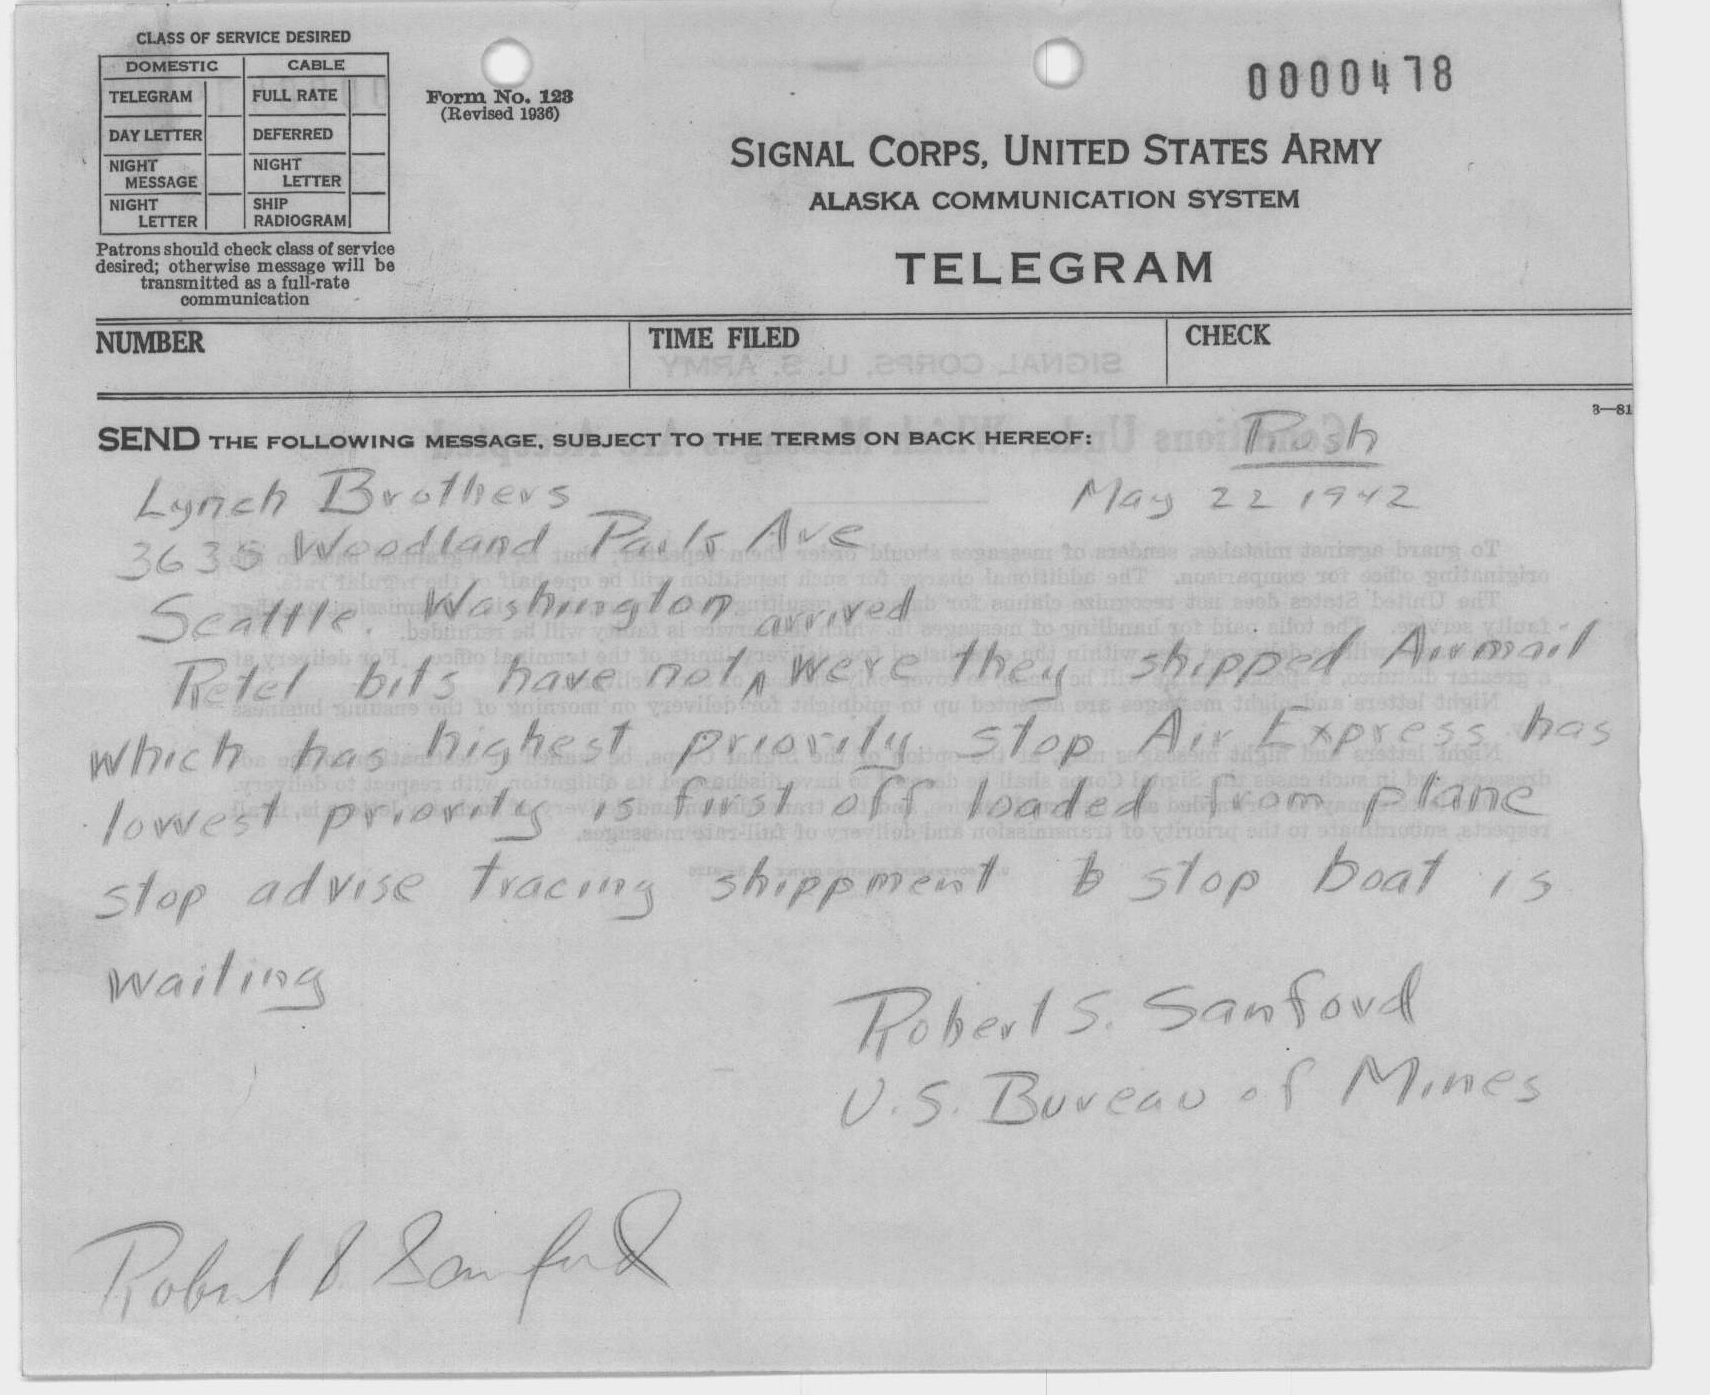 CLASS OF SERVICE DESIRED
DOMESTIC CABLE
TELEGRAM FULL RATE
DAY LETTER DEFERRED
NIGHT MESSAGE NIGHT LETTER
NIGHT LETTER SHIP RADIOGRAM
Patrons should check class of service
desired; otherwise message will be
transmitted as a full-rate
communication
Form No. 123
(Revised 1936)
0000478
SIGNAL CORPS, UNITED STATES ARMY
ALASKA COMMUNICATION SYSTEM
TELEGRAM
NUMBER TIME FILED CHECK
3—81
SEND THE FOLLOWING MESSAGE, SUBJECT TO THE TERMS ON BACK HEREOF:
Rush
May 22 1942
Lynch Brothers
Woodland Park Ave
Seattle. Washington
arrived
Retel bits have not were they shipped Airmail
which has highest priority stop Air Express has
lowest priority is first off loaded from plane
stop advise tracing shippment stop boat is
waiting
Robert S. Sanford
U.S. Bureau of Mines
Robert S Sanford